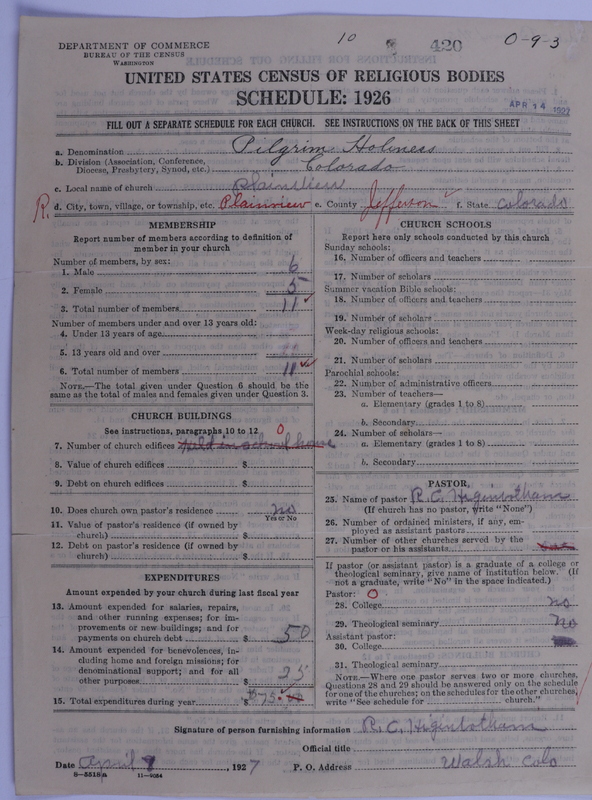 10 420 0-9-3
DEPARTMENT OF COMMERCE
BUREAU OF THE CENSUS
WASHINGTON
UNITED STATES CENSUS OF RELIGIOUS BODIES
SCHEDULE: 1926
APR 14 1927
FILL OUT A SEPARATE SCHEDULE FOR EACH CHURCH. SEE INSTRUCTIONS ON THE BACK OF THIS SHEET
a. Denomination Pilgrim Holiness
b. Division (Association, Conference, Diocese, Presbytery, Synod, etc.) Colorado
c. Local name of church Plainview
R. d. City, town, village, or township, etc. Plainview e. County Jefferson f. State Colorado
MEMBERSHIP
Report number of members according to definition of
member in your church
Number of members, by sex:
1. Male 6
2. Female 5
3. Total number of members 11
Number of members under and over 13 years old:
4. Under 13 years of age
5. 13 years old and over
6. Total number of members 11
NOTE.—The total given under Question 6 should be the
same as the total of males and females given under Question 3.
CHURCH BUILDINGS
See instructions, paragraphs 10 to 12 0
7. Number of church edifices held in school house
8. Value of church edifices $
9. Debt on church edifices $
10. Does church own pastor's residence no
Yes or No
11. Value of pastor's residence (if owned by
church) $
12. Debt on pastor's residence (if owned by
church) $
EXPENDITURES
Amount expended by your church during last fiscal year
13. Amount expended for salaries, repairs,
and other running expenses; for im-
provements or new buildings; and for
payments on church debt $ 50
14. Amount expended for benevolences, in-
cluding home and foreign missions; for
denominational support; and for all
other purposes $ 25
15. Total expenditures during year $ $75
CHURCH SCHOOLS
Report here only schools conducted by this church
Sunday schools:
16. Number of officers and teachers
17. Number of scholars
Summer vacation Bible schools:
18. Number of officers and teachers
19. Number of scholars
Week-day religious schools:
20. Number of officers and teachers
21. Number of scholars
Parochial schools:
22. Number of administrative officers
23. Number of teachers—
a. Elementary (grades 1 to 8)
b. Secondary
24. Number of scholars—
a. Elementary (grades 1 to 8)
b. Secondary
PASTOR
25. Name of pastor R. C. Higinbotham
(If church has no pastor, write "None")
26. Number of ordained ministers, if any, em-
ployed as assistant pastors
27. Number of other churches served by the
pastor or his assistants
If pastor (or assistant pastor) is a graduate of a college or
theological seminary, give name of institution below. (If
not a graduate, write "No" in the space indicated.)
Pastor: 0
28. College no
29. Theological seminary no
Assistant pastor:
30. College
31. Theological seminary
NOTE.—Where one pastor serves two or more churches,
Questions 28 and 29 should be answered only on the schedule
for one of the churches; on the schedules for the other churches,
write "See schedule for church."
Signature of person furnishing information R. C. Higinbotham
Official title
Date April 7, 1927 P. O. Address Walsh Colo
8—5518a 11—9034